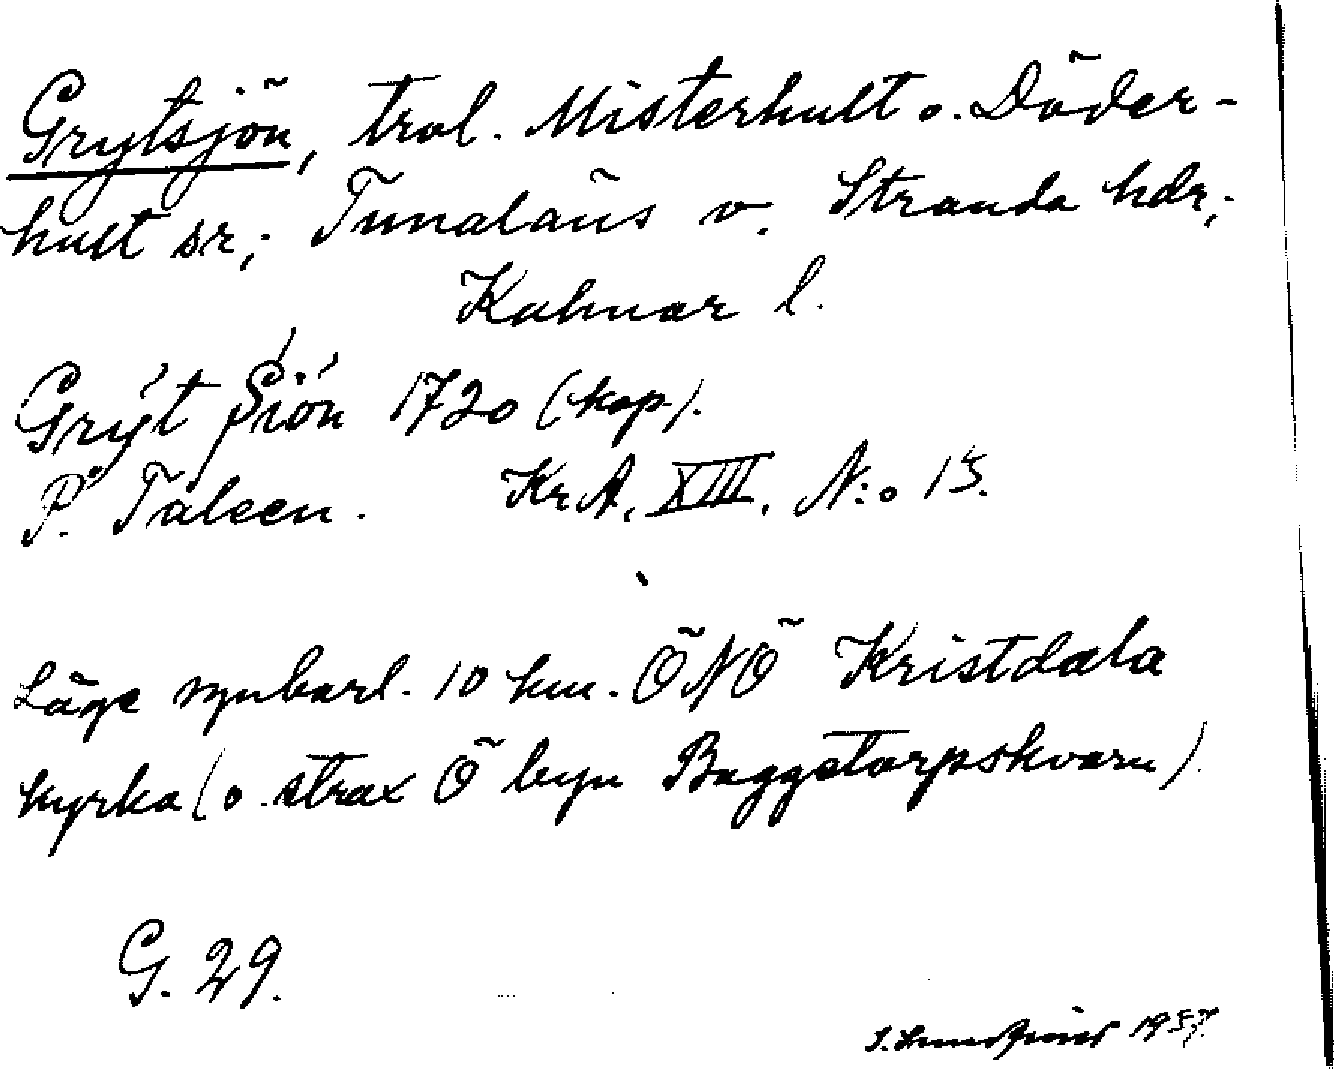 Grytsjön, trol. Misterhult o. Döder-
hult sr; Tunaläns o. Stranda hdr;
Kalmar l.
Grÿt Siön 1720 (kop.).
P. Tåleen. KrA, XIII, N:o 15.
Läge synbarl. 10 km. ÖNÖ Kristdala
kyrka (o. strax Ö byn Baggetorpskvarn).
G. 29.
1957.